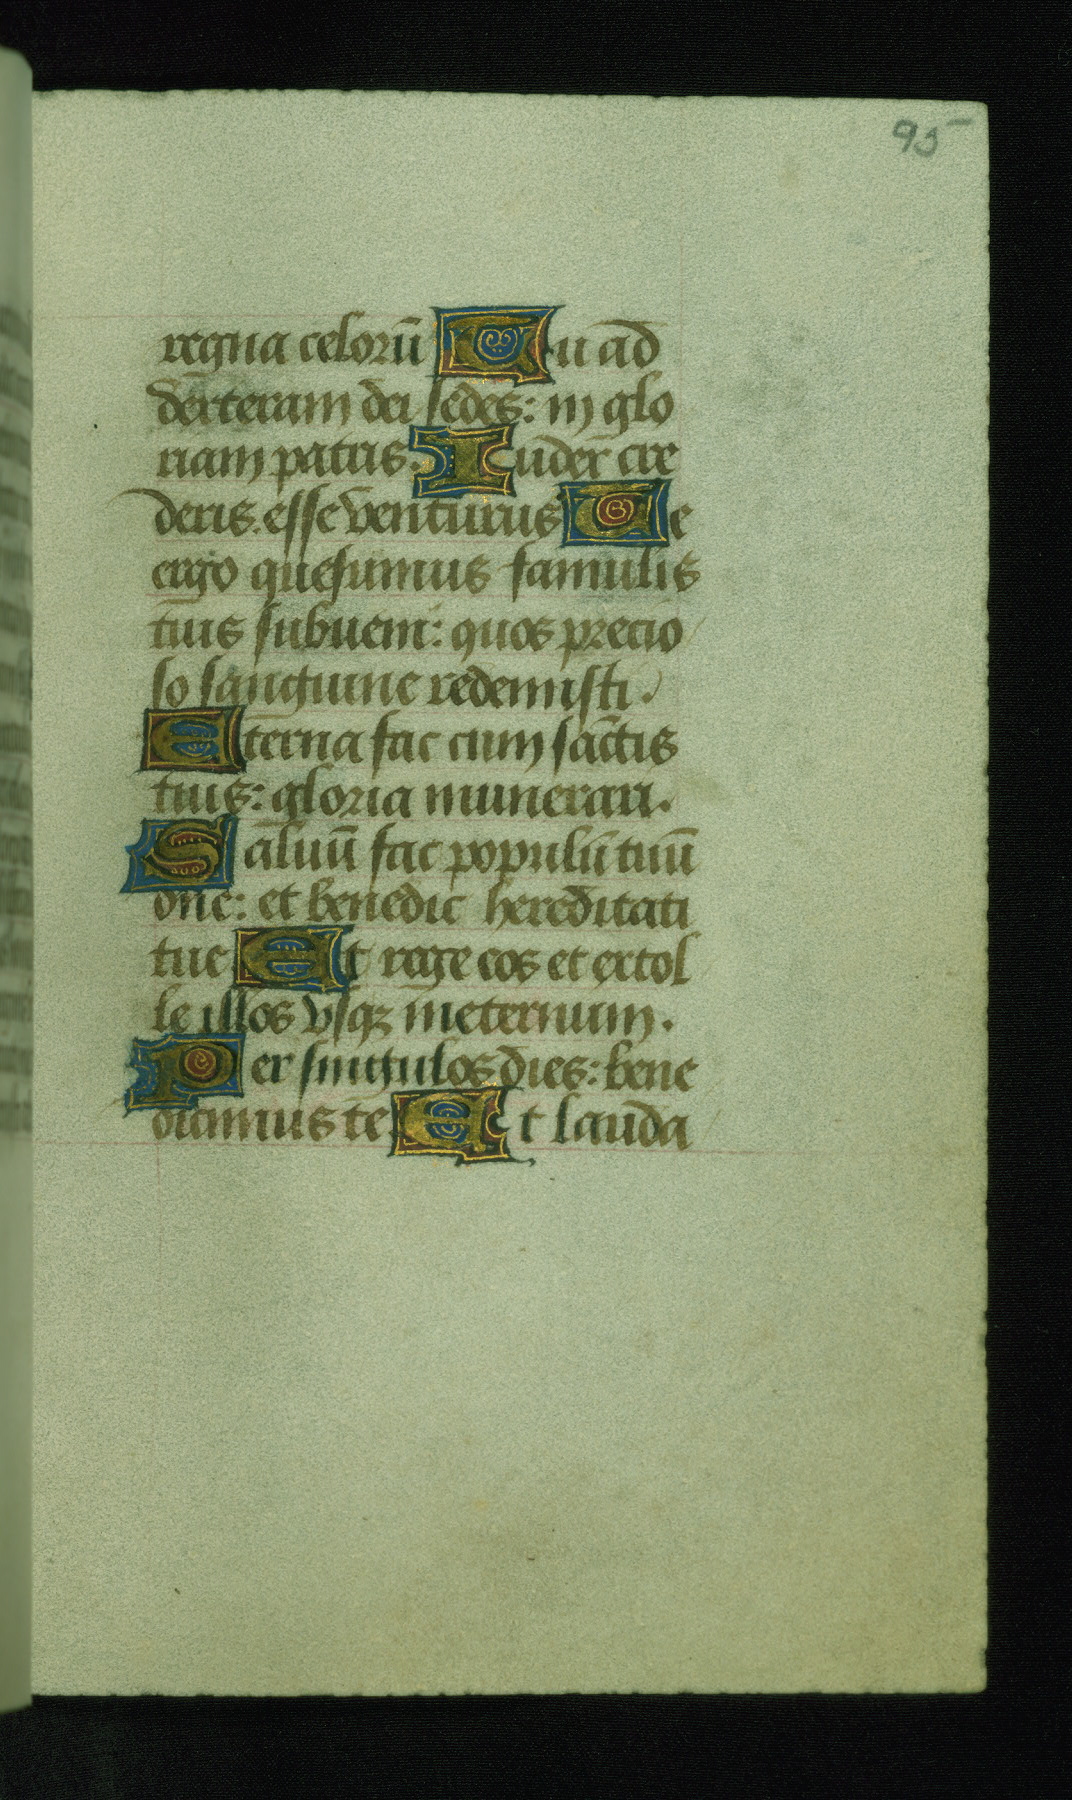 95
regna celorū Tu ad
dexteram dei sedes: in glo
riam patris. Iudex cre
deris. esse venturus Te
ergo quesumus famulis
tuis subueni: quos precio
so sanguine redemisti.
Eterna fac cum sanctis
tuis: gloria munerari.
Saluū fac populū tuū
dne: et benedic hereditati
tue Et rege eos et extol
le illos vsqz ineternum.
Per singulos dies: bene
dicimus te Et lauda